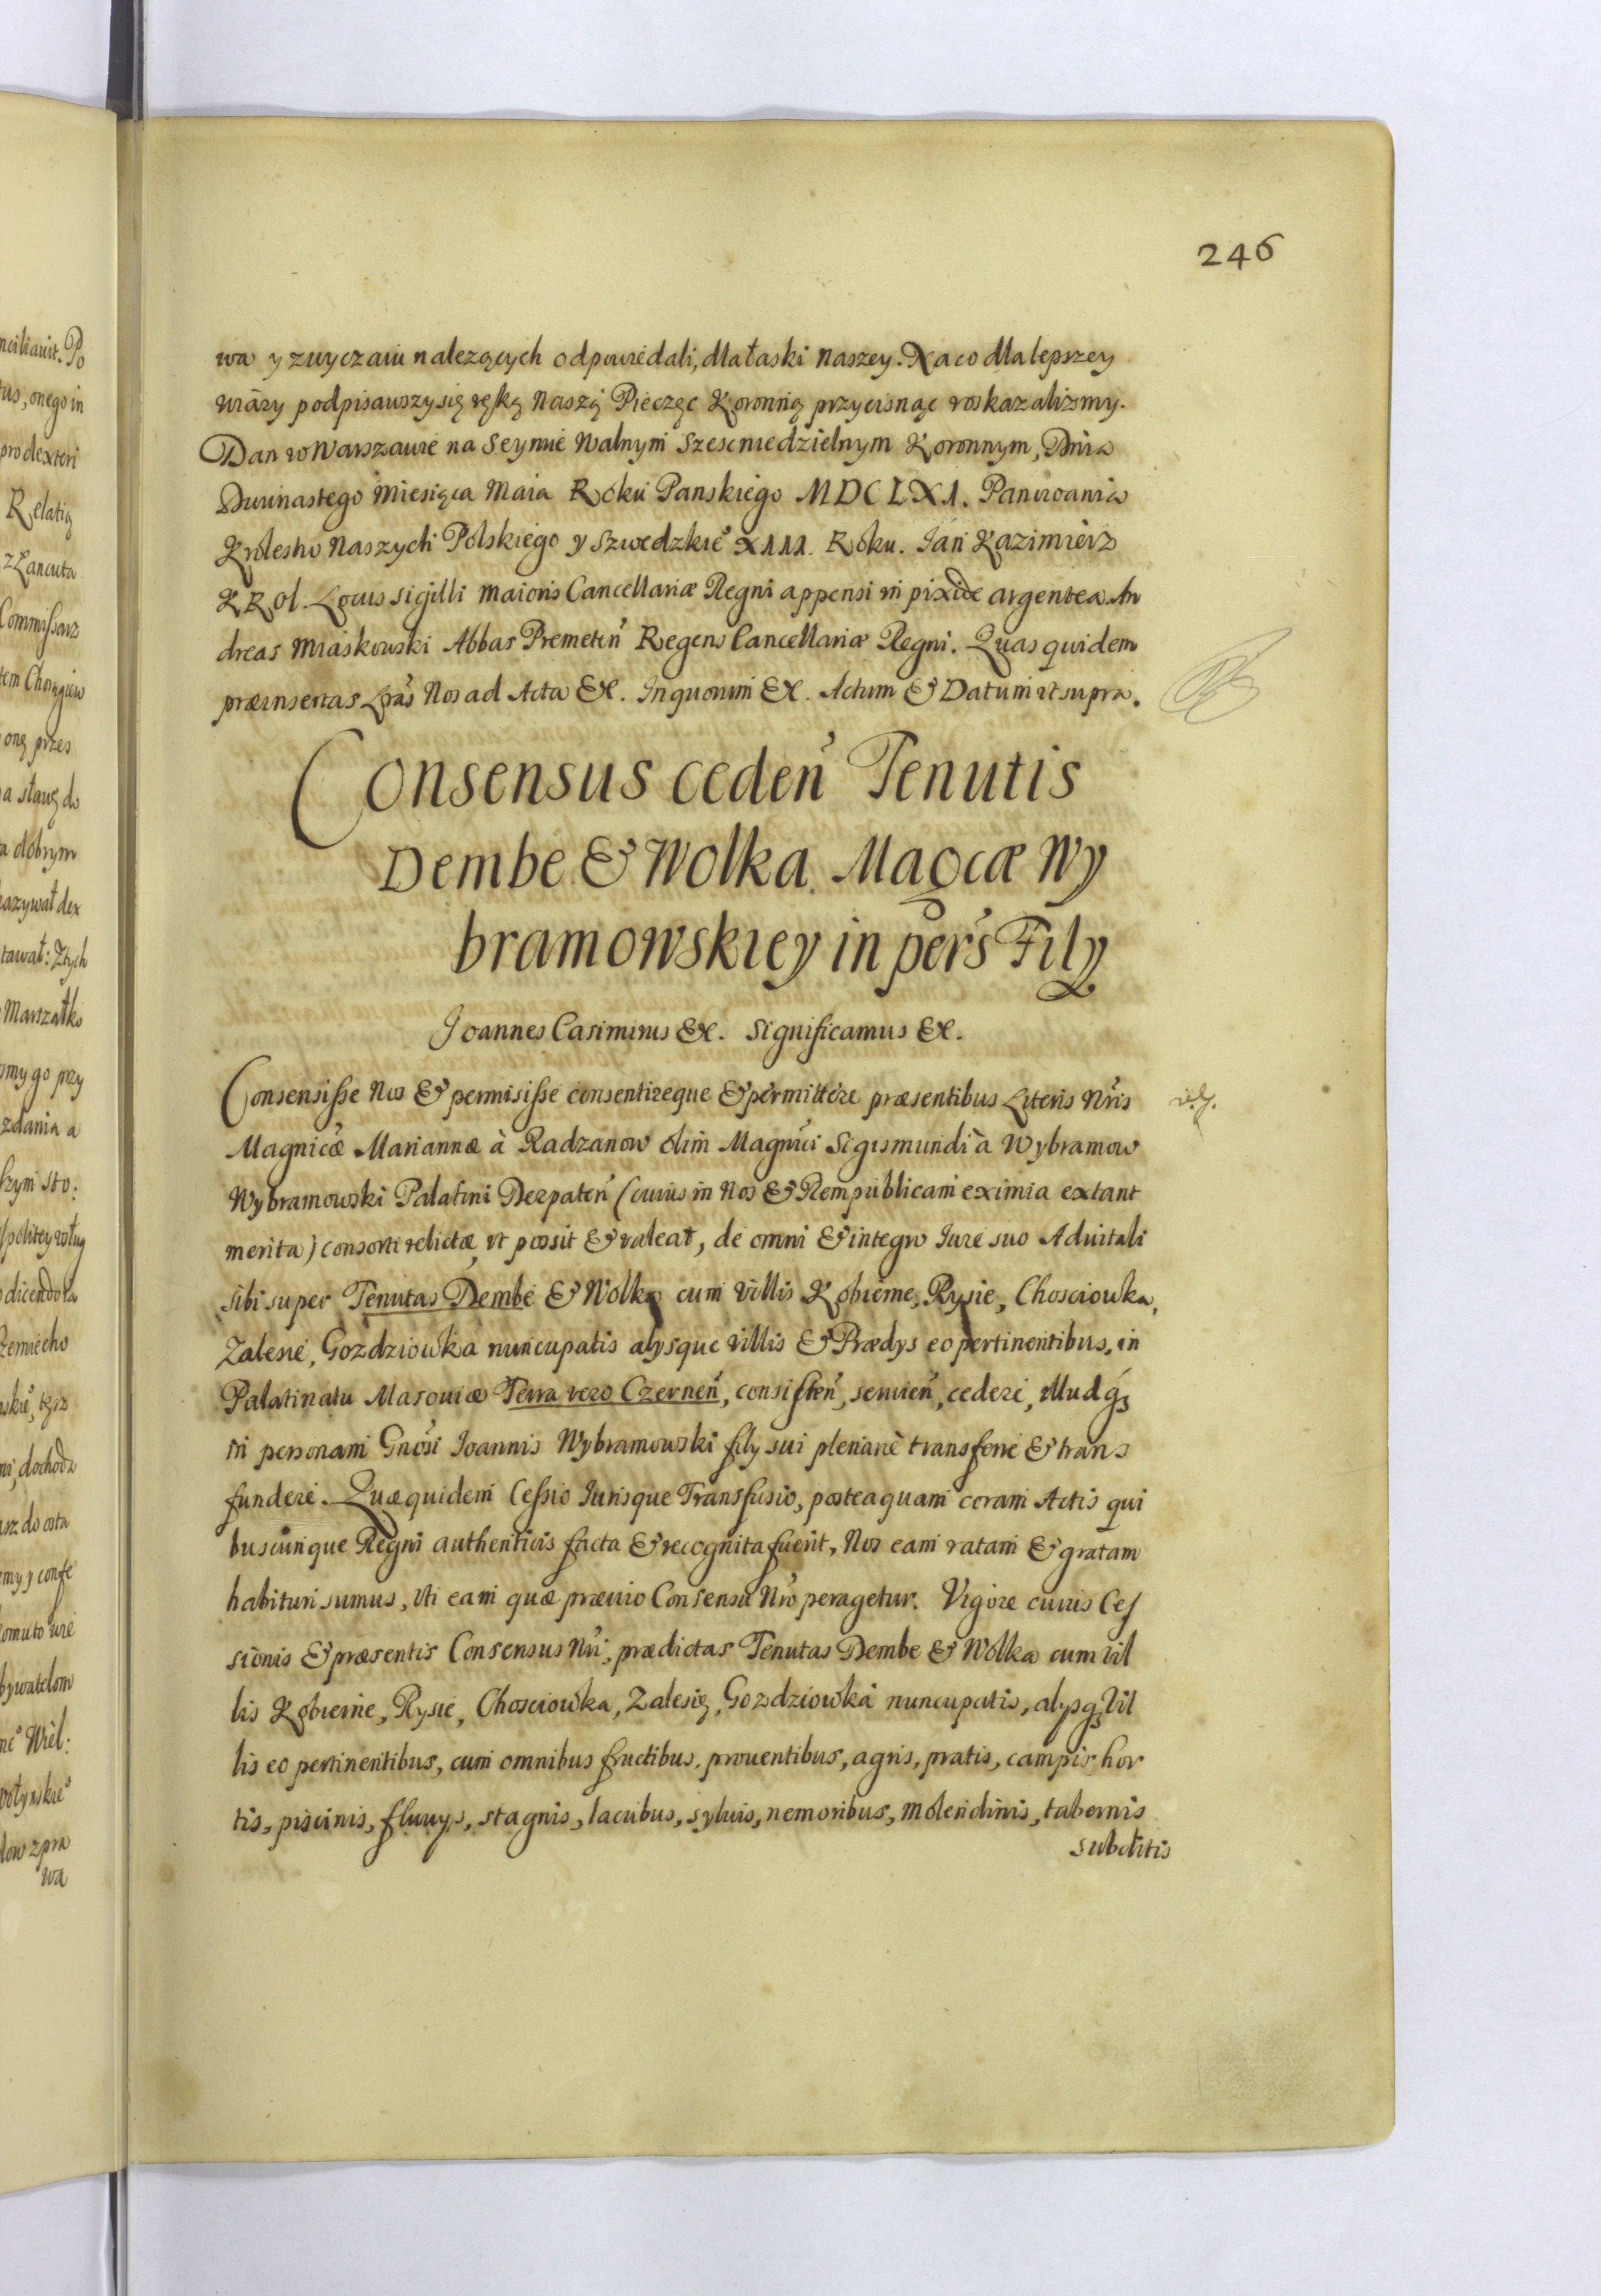 246
wa y zwyczaiu nalezących odpowiedali, dla łaski Naszey. Na co dla lepszey
wiáry podpisawszy się ręką Naszą Pieczęc Koronną przycisnąc roskazalizmy.
Dan w Warszawie na Seymie Walnym Szescniedzielnym Koronnym, Dnia
Dwunastego Miesiąca Maia Roku Panskiego MDCLXI. Panowania
Krolestw Naszych Polskiego y Szwedzkieº XIII. Roku. Ian Kazimierz
KRol. Locus sigilli maioris Cancellariæ Regni appensi in pixide argentea. An
dreas Miaskowski Abbas Premeteñ Regens Cancellariæ Regni. Quas quidem
præinsertas Lrãs Nos ad Acta &c. In quorum &c. Actum & Datum ut supra.
Consensus cedeñ Tenutis
Dembe & Wolka Magcæ Wy
bramowskiey in pers Filÿ
Joannes Casimirus &c. Significamus &c.
Consensisse Nos & permisisse consentireque & permittere præsentibus Literis Nris
Magnicæ Mariannæ à Radzanow olim Magnici Sigismundi à Wybramow
Wybramowski Palatini Derpateñ (cuius in Nos & Rempublicam eximia extant
merita) consorti relictæ, ut possit & valeat, de omni & integro Iure suo Advitali
sibi super Tenutas Dembe & Wolka cum Villis Kobierne, Rysie, Chosciowka,
Zalesie, Gozdziowka nuncupatis alÿsque villis & Prædÿs eo pertinentibus, in
Palatinatu Masoviæ Terra vero Czerneñ, consisteñ, servieñ, cedere, illudq3
in personam Gnosi Ioannis Wybramowski filÿ sui plenariè transferre & trans
fundere. Quæquidem Cessio Iurisque Transfusio, posteaquam coram Actis qui
buscunque Regni authenticis facta & recognita fuerit, Nos eam ratam & gratam
habituri sumus, uti eam quæ prævio Consensu Nro peragetur. Vigore cuius Ces
sionis & præsentis Consensus Nri, prædictas Tenutas Dembe & Wolka cum Vil
lis Kobierne, Rysie, Chosciowka, Zalesie, Gozdziowka nuncupatis, alÿsq3 Vil
lis eo pertinentibus, cum omnibus fructibus, proventibus, agris, pratis, campis hor
tis, piscinis, fluvÿs, stagnis, lacubus, sylvis, nemoribus, molendinis, tabernis
subditis